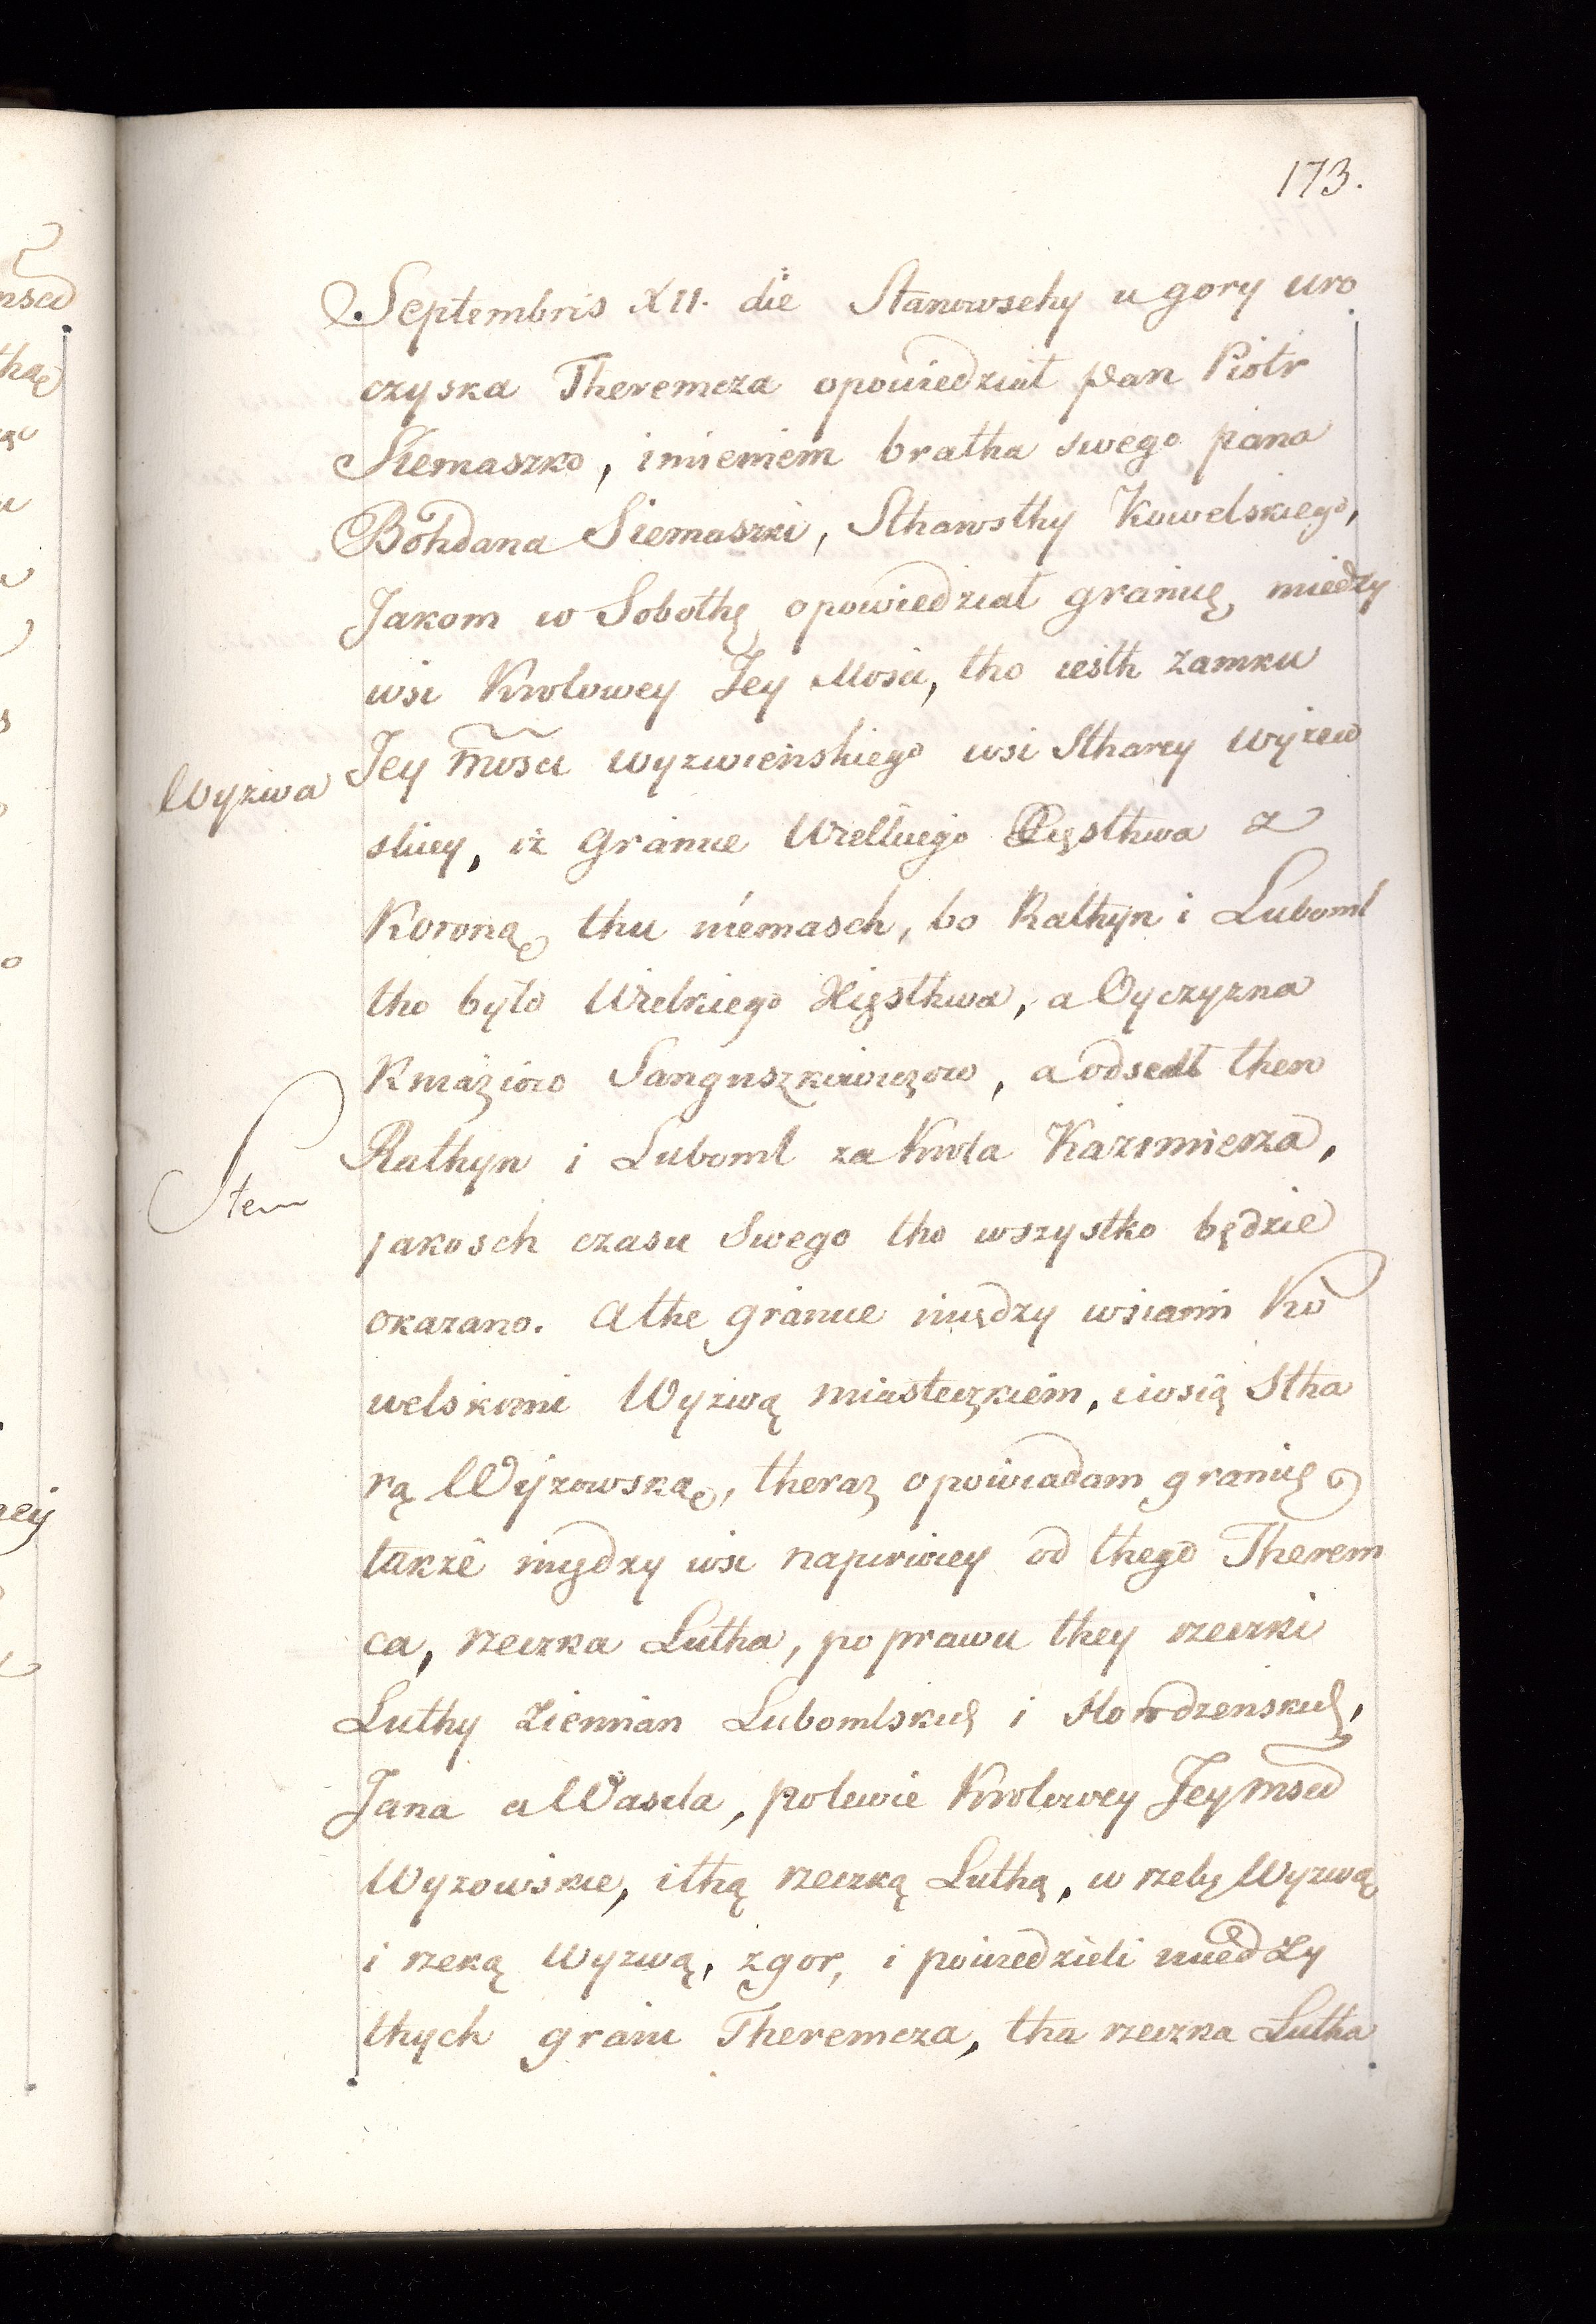 173.
Septembris XII. die Stanowschy u gory uro
czyska Theremcza opowiedział pan Piotr
Siemaszko, imieniem bratha swego pana
Bohdana Siemaszki, Sthawsthy Kowelskiego,
Jakom w Sobothę opowiedział granicę, miedzy
wsi Krolowey Jey Mosci, tho iesth zamku
Jey mosci wyzwieńskiego wsi Stharey Wyzew
Wyzwa
skiey, iż Granice Wielkiego Xięsthwa z
Koroną thu niemasch, bo Rathyn i Luboml
tho było Wielkiego Xięsthwa, a Oyczyzna
Kniaziow Sanguszkowiczow, a odsedł then
Rathyn i Luboml za Krola Kazimierza,
Item
jakosch czasu Swego tho wszystko będzie
okazano. A the granice między wsiami Ko
welskimi Wyzwą miasteczkiem, i wsią Stha
rą Wyzowską, theraz opowiadam granicę
także między wsi napirwiey od thego Therem
ca, rzeczka Lutha, po prawu they rzeczki
Luthy Ziemian Lubomlskich i Howdzenskich,
Jana a Wascla, polewie Krolowey Jey msci
Wyzowskie, i thą rzeczką Luthą, w rzekę Wyzwą
i rzeką Wyzwą, zgor, i powiedzieli miedzy
thych granic Theremcza, tha rzeczka Lutha